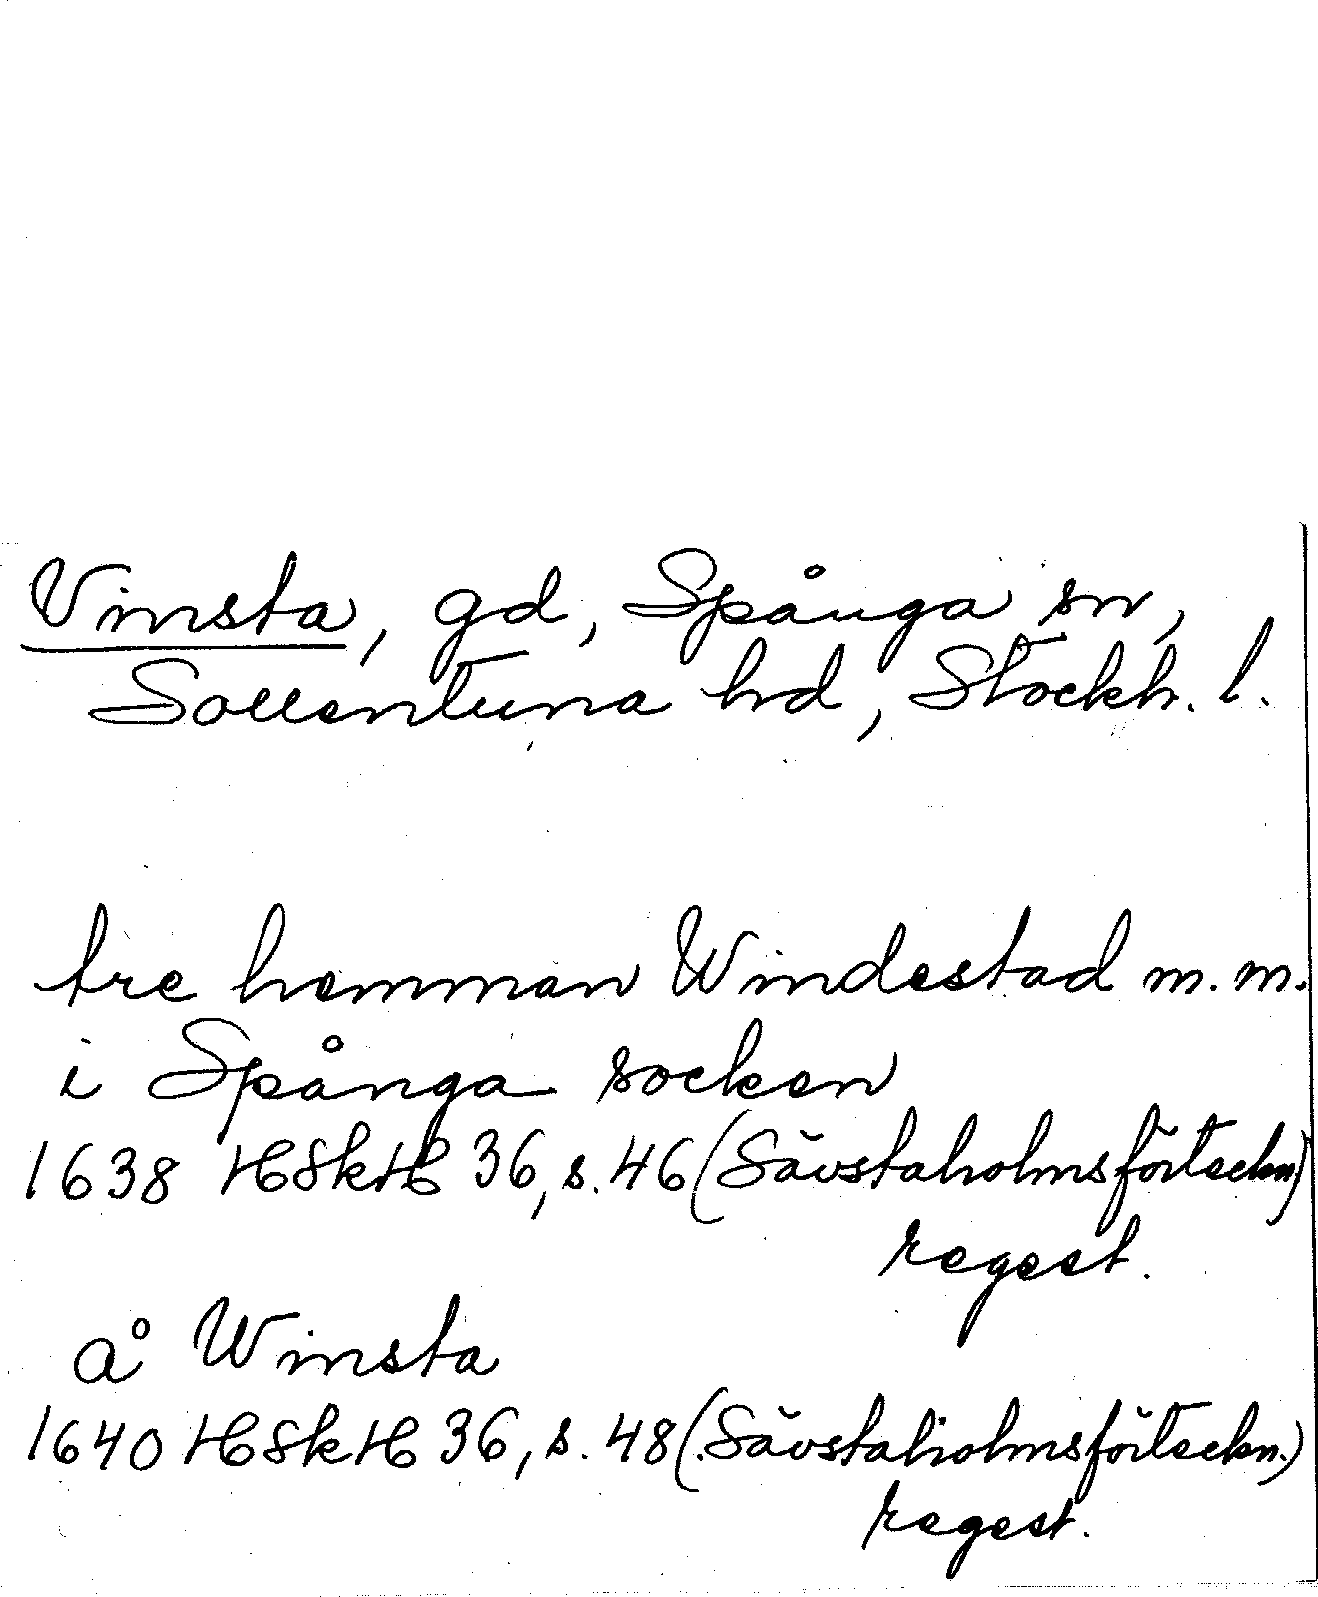 Vinsta, gd, Spånga sn,
Sollentuna hd, Stockh. l.
tre hemman Windestad m.m.
i Spånga socken
1638 HSkH 36, s. 46 (Sävstaholmsförteckn.)
regest.
å Winsta
1640 HSkH 36, s. 48 (Sävstaholmsförteckn.)
regest.